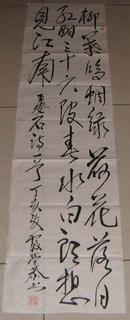 柳葉鳴蜩綠荷花落日
紅酣三十六陂春水白頭想
見江南 石詩一首 丁亥